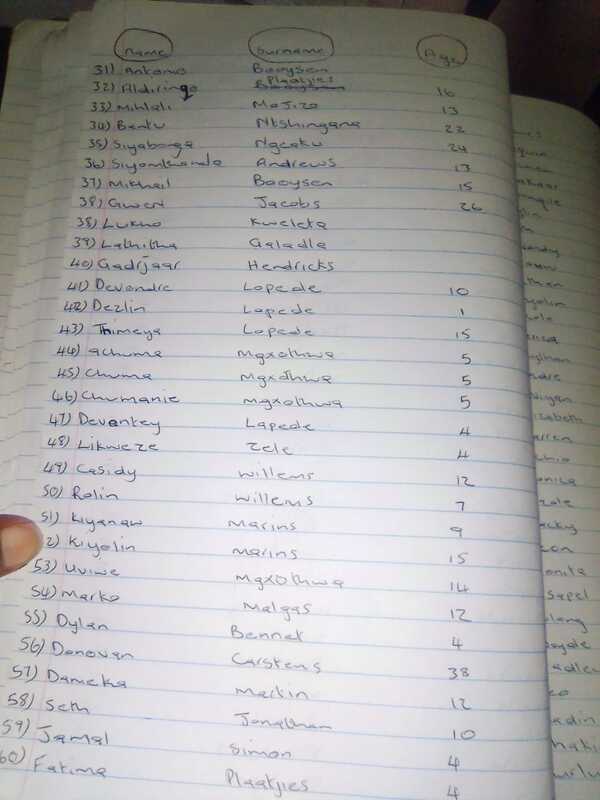 Name Surname Age
31) Antonio Booysen
32) Aldiringo Plaatjies 16
33) Mihlali Majiza 13
34) Bantu Ntshingana 22
35) Siyabonga Ngcaku 24
36) Siyamthanda Andrews 13
37) Mikhail Booysen 15
38) Gwen Jacobs 26
38) Lukho Kweleta
39) Lathitha Galadla
40) Gadijaar Hendricks
41) Devondre Lopede 10
42) Dezlin Lopede 1
43) Thimeya Lopede 15
44) achuma Mgxothwa 5
45) Chuma Mgxothwa 5
46) Chumanie Mgxothwa 5
47) Devankey Lapede 4
48) Likweze Zele 4
49) Casidy Willems 12
50) Rolin Willems 7
51) Kiyanaw Marins 9
2) Kiyolin Marins 15
53) Uviwe Mgxothwa 14
54) Marko Malgas 12
55) Dylan Bennet 4
56) Donovan Carstens 38
57) Dameka Martin 12
58) Seth Jonathan 10
59) Jamal Simon 4
60) Fatima Plaatjies 4